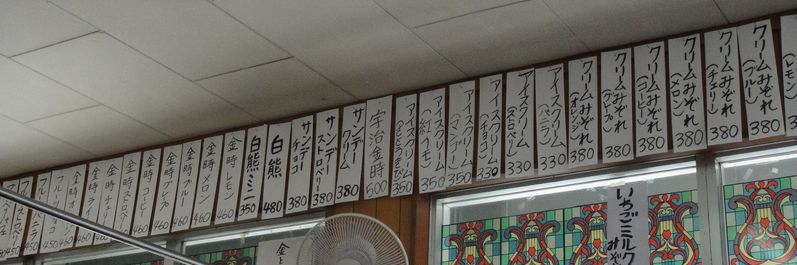 クリームみぞれ
(ブルー)
380
クリームみぞれ
(チェリー)
380
クリームみぞれ
(メロン)
380
クリームみぞれ
(コーヒー)
380
クリームみぞれ
(グレープ)
380
クリームみぞれ
(オレンジ)
380
アイスクリーム
(バニラ)
330
アイスクリーム
(ストロベリー)
330
アイスクリーム
(チョコ)
330
アイスクリーム
(マンゴー)
350
アイスクリーム
(紅イモ)
350
アイスクリーム
(さとうきび)
350
宇治金時
500
サンデー
クリーム
380
サンデー
ストロベリー
380
サンデー
チョコ
380
白熊
480
白熊ミニ
350
金時レモン
460
金時メロン
460
金時ブルー
460
金時グレープ
460
金時コーヒー
460
金時ストロベリー
460
金時チェリー
460
金時ライム
460
金時オレンジ
460
いちごミルク
みぞれ